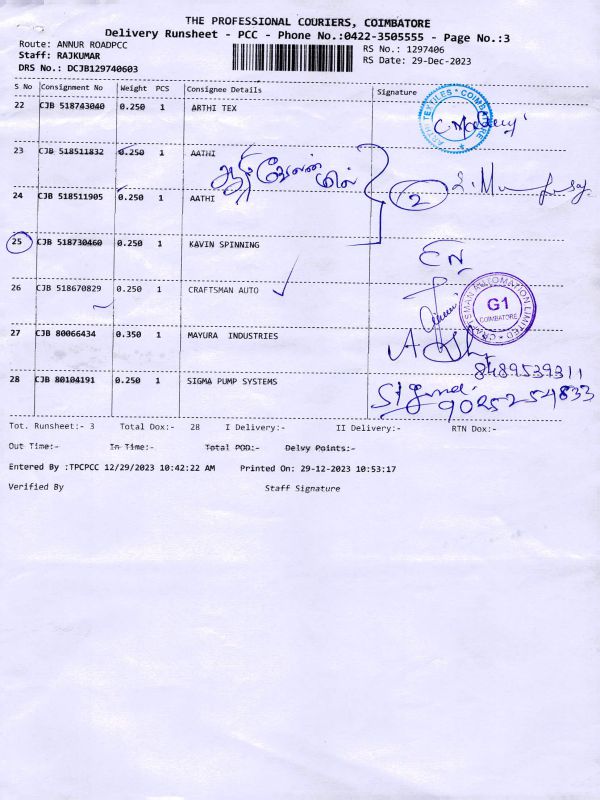 THE PROFESSIONAL COURIERS, COIMBATORE
Delivery Runsheet - PCC - Phone No.:0422-3505555 - Page No.:3
Route: ANNUR ROADPCC
RS No.: 1297406
Staff: RAJKUMAR
RS Date: 29-Dec-2023
DRS No.: DCJB129740603
S No Consignment No Weight PCS Consignee Details Signature
22 CJB 518743040 0.250 1 ARTHI TEX
ARTHI TEXTILES * COIMBATORE *
23 CJB 518511832 0.250 1 AATHI
2
24 CJB 518511905 0.250 1 AATHI
25 CJB 518730460 0.250 1 KAVIN SPINNING
26 CJB 518670829 0.250 1 CRAFTSMAN AUTO
CRAFTSMAN AUTOMATION LIMITED
G1
COIMBATORE
27 CJB 80066434 0.350 1 MAYURA INDUSTRIES
8489539311
28 CJB 80104191 0.250 1 SIGMA PUMP SYSTEMS
9025254833
Tot. Runsheet:- 3 Total Dox:- 28 I Delivery:- II Delivery:- RTN Dox:-
Out Time:- In Time:- Total POD:- Delvy Points:-
Entered By :TPCPCC 12/29/2023 10:42:22 AM Printed On: 29-12-2023 10:53:17
Verified By Staff Signature